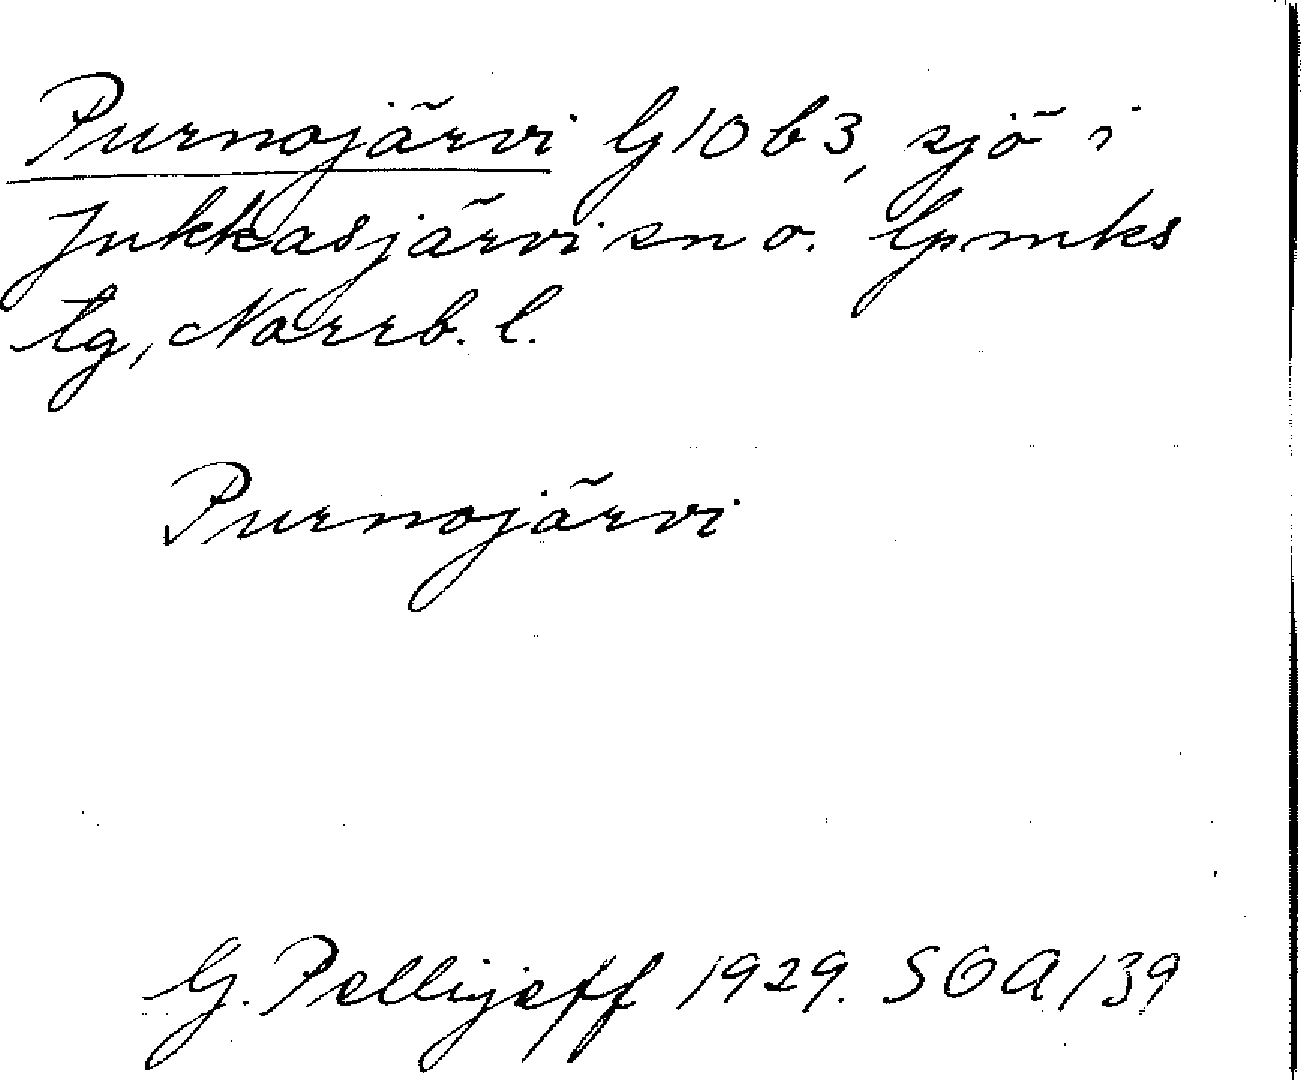 Purnojärvi G10b3, sjö i
Jukkasjärvi sn o. lpmks
tg, Norrb. l.
Purnojärvi
G. Pellijeff 1929. SOA/39